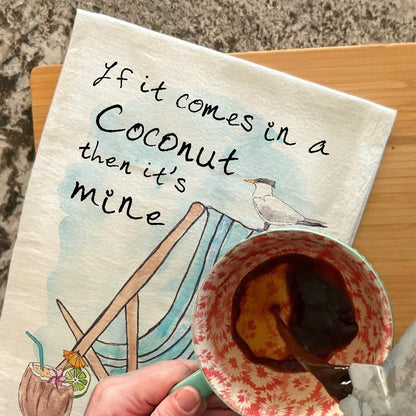 If it comes in a
Coconut
then it's
mine